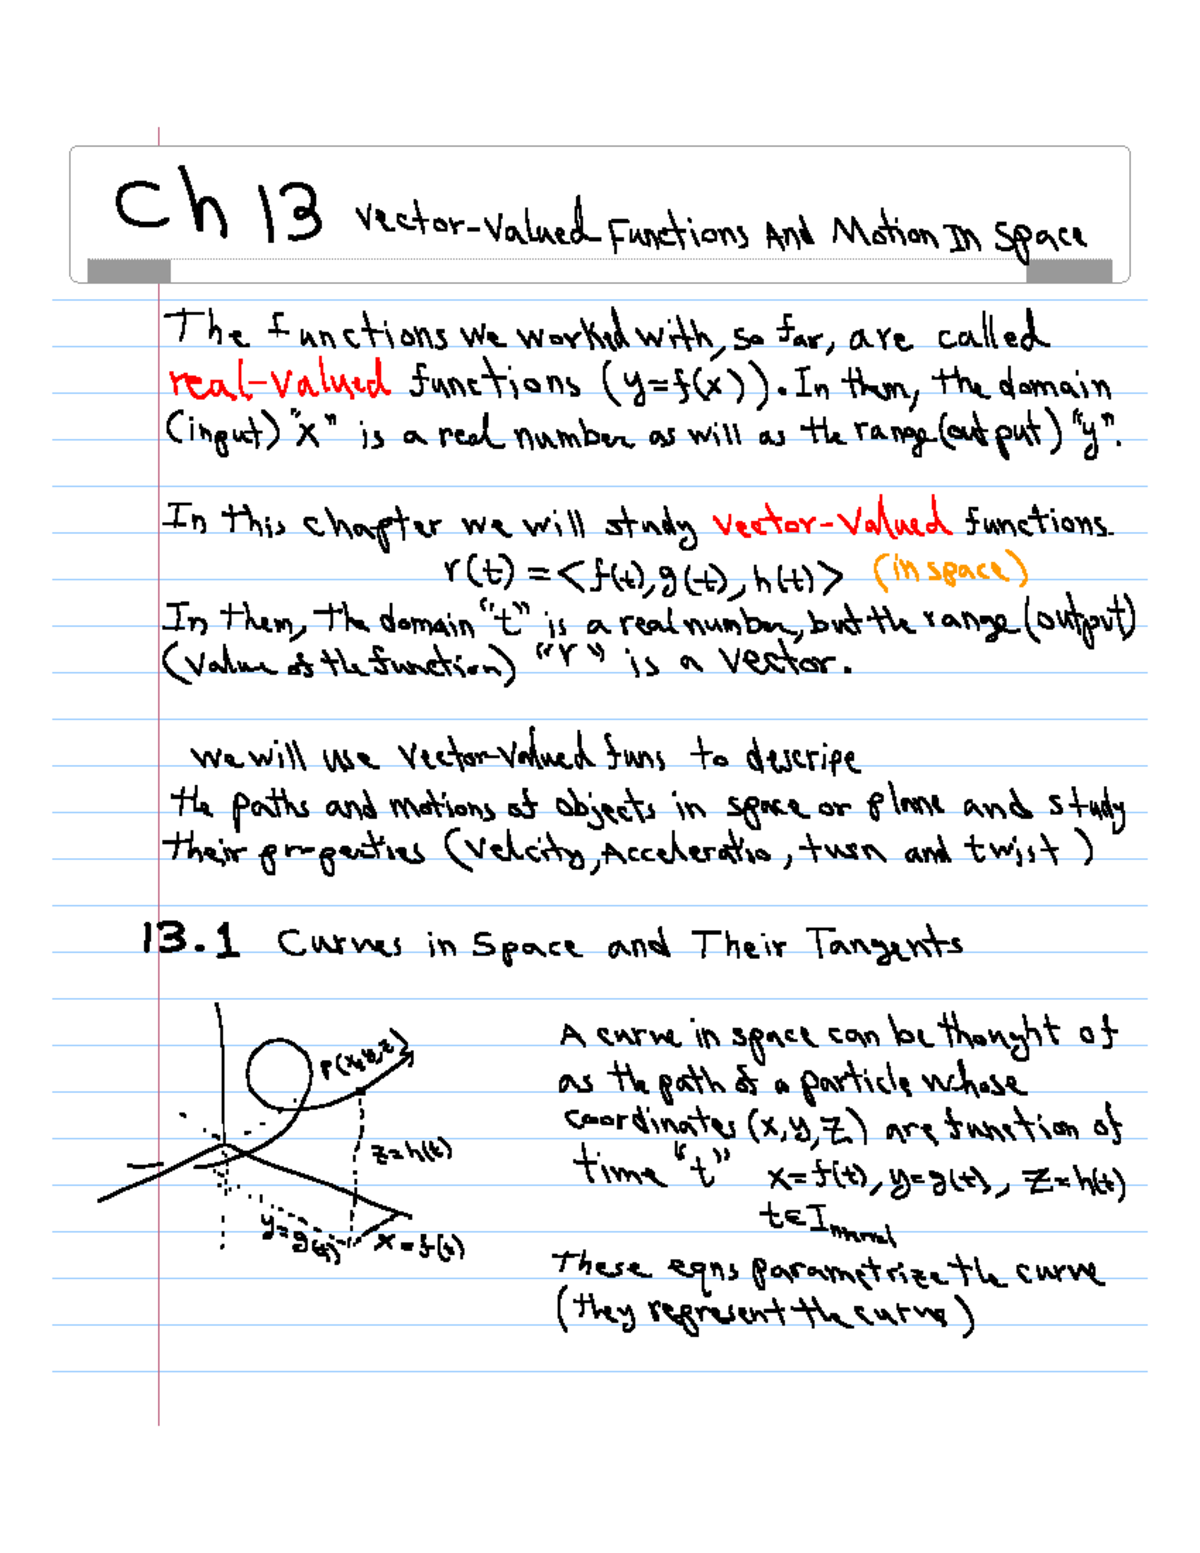 Ch 13 Vector-Valued Functions And Motion In Space
The functions we worked with, so far, are called
real-valued functions (y=f(x)). In them, the domain
(input) "x" is a real number as will as the range (output) "y".
In this chapter we will study vector-valued functions.
r(t) = <f(t), g(t), h(t)> (in space)
In them, the domain "t" is a real number, but the range (output)
(value of the function) "r" is a vector.
we will use vector-valued funs to descripe
the paths and motions of objects in space or plane and study
their properties (Velcity, Acceleratio, turn and twist)
13.1 Curves in Space and Their Tangents
A curve in space can be thought of
as the path of a particle whose
coordinates (x,y,z) are function of
time "t" x=f(t), y=g(t), z=h(t)
t∈Interval
These eqns parametrize the curve
(they represent the curve)
P(x,y,z)
z=h(t)
y=g(t)
x=f(t)